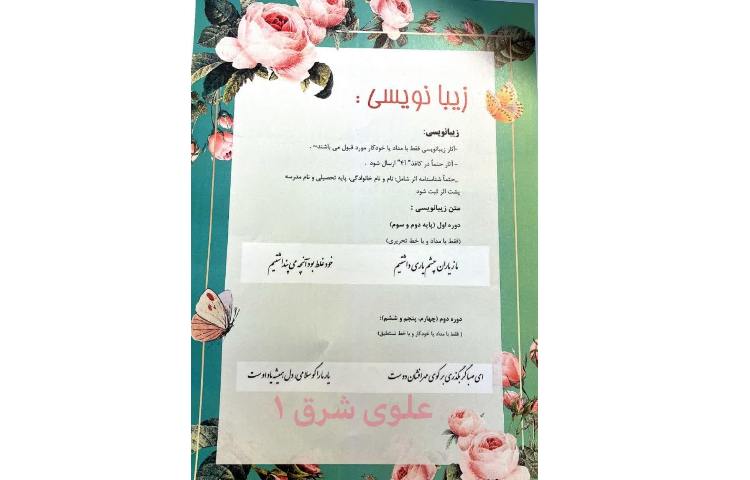 زیبا نویسی :
زیبانویسی:
-آثار زیبانویسی فقط با مداد یا خودکار مورد قبول می باشند- .
- آثار حتماً در کاغذ "A4" ارسال شود .
-حتماً شناسنامه اثر شامل: نام و نام خانوادگی، پایه تحصیلی و نام مدرسه
پشت اثر ثبت شود
متن زیبانویسی :
دوره اول (پایه دوم و سوم)
(فقط با مداد و با خط تحریری)
ما ز یاران چشم یاری داشتیم خود غلط بود آنچه می پنداشتیم
دوره دوم (چهارم، پنجم و ششم):
( فقط با مداد یا خودکار و با خط نستعلیق)
ای صبا گر بگذری بر کوی مهرافشان دوست یار ما را گو سلامی، دل همیشه یاد اوست
علوی شرق ۱